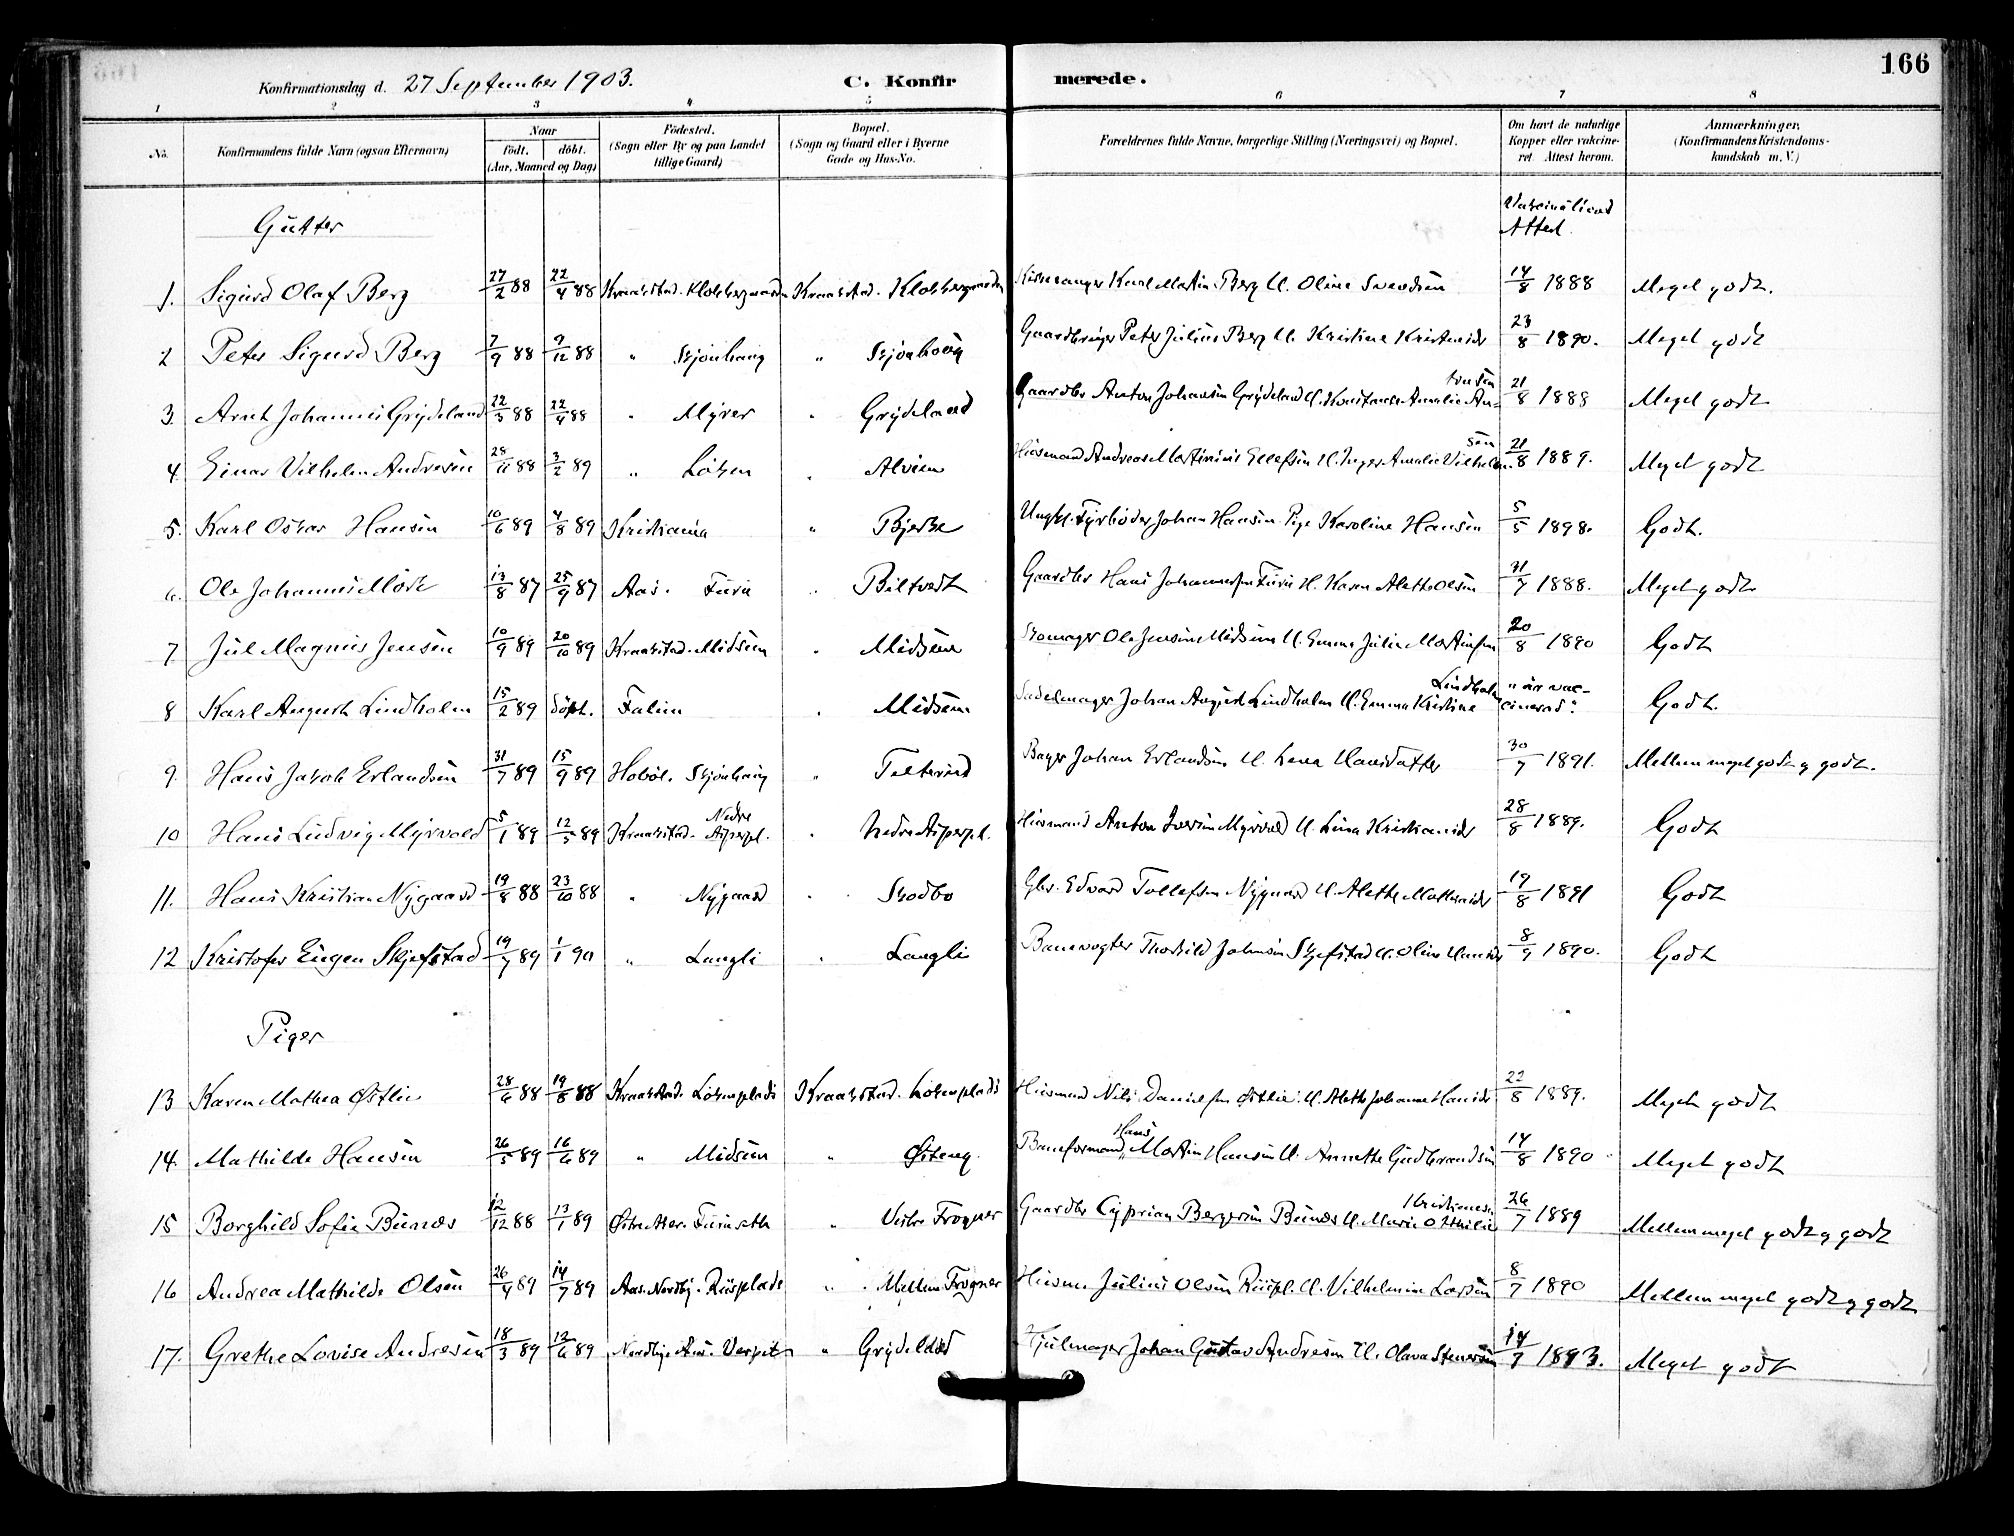 166
Konfirmationsdag d. 27 September 1903. C. Konfirmerede.
1 2 3 4 5 6 7 8
No. Konfirmandens fulde Navn (ogsaa Efternavn) Naar født. døbt. (Aar, Maaned og Dag) Fødested. (Sogn eller By og paa Landet tillige Gaard) Bopæl. (Sogn og Gaard eller i Byerne Gade og Hus-No. Forældrenes fulde Navne, borgerlige Stilling (Næringsvei) og Bopæl. Om havt de naturlige Kopper eller vakcineret. Attest herom. Anmærkninger, (Konfirmandens Kristendomskundskab m. V.)
Gutter Attest.
1. Sigurd Olaf Berg 27/2 88 22/4 88 Kraakstad. Klokkergaarden Kraakstad. Klokkergaarden Kirkesanger Karl Martin Berg U. Oline Svendsen 14/8 1888 Meget godt.
2 Peter Sigurd Berg 7/9 88 9/12 88 " Skjønhaug " Skjønhaug Gaardbruger Peter Julius Berg U. Kristine 23/8 1890. Meget godt
3. Arnt Johannes Grydeland 22/3 88 22/4 88 " Myrer " Grydeland Gaardbr Anton Johansen Grydeland U. Konstanse Amalie Antonsen 21/8 1888 Meget godt
4. Einar Vilhelm Andresen 28/11 88 3/2 89 " Løken " Husmand Andreas Martinius Ellefsen U. Inger Amalie Vilhelmsen 21/8 1889. Meget godt
5. Karl Oskar Hansen 10/6 89 4/8 89 Kristiania " Bjerke Ungk. Fyrbøder Johan Hansen Pige Karoline Hansen 5/5 1898. Godt.
6. Ole Johannes 13/8 87 25/9 87 Aas. Furu " Gaardbr Hans Johannessen Furu U. Karen Alette Olsen 31/7 1888. Meget godt
7 Jul Magnus Jensen 10/9 89 20/10 89 Kraakstad. Midsem " Midsem Skomager Ole Jensen Midsem U. Emma Julie Martinsen 20/8 1890 Godt
8 Karl August Lindholm 15/2 89 døpt. Falun " Midsem Sadelmager Johan August Lindholm U. Emma Kristine Lindholm "är vaccinerad". Godt.
9. Hans Jakob Erlandsen 31/7 89 15/9 89 Hobøl. Skjønhaug " Bager Johan Erlandsen U. Lena Hansdatter 30/7 1891. Mellem meget godt og godt.
10 Hans Ludvig Myrvold 5/1 89 12/5 89 Kraakstad. Nedre Asperpl. " Nedre Asperpl. Husmand Anton Iversen Myrvold U. Lina 28/8 1889. Godt
11. Hans Kristian Nygaard 19/8 88 23/10 88 " Nygaard " Skodbo Gbr. Edvard Tollefsen Nygaard U. Alette 19/8 1891 Godt
12 Kristofer Eugen Skjefstad 19/7 89 1/1 90 " Langli " Langli Banevogter Thorkild Johnsen Skjefstad U. Oline 8/9 1890. Godt
Piger
13 Karen Mathea Østlie 28/6 88 19/8 88 Kraakstad. Løkenplads Kraakstad. Løkenplads Husmand Nils Danielsen Østlie. U. Alette Johanne Hansdr 22/8 1889. Meget godt
14. Mathilde Hansen 26/5 89 16/6 89 " Midsem " Østeng. Baneformand Hans Martin Hansen U. Annette Gudbrandsen 14/8 1890 Meget godt
15 Borghild Sofie Bunæs 12/12 88 13/1 89 Furuseth " Vestre Frogner Gaardbr Cyprian Bergersen Bunæs U. Marie Othilie Kristiansen 26/7 1889 Mellem meget godt og godt
16 Andrea Mathilde Olsen 26/4 89 14/7 89 Aas. Nordby. Riisplads " Mellem Frogner Husm. Julius Olsen Riispl. U. Vilhelmine Larsen 8/7 1890 Mellem meget godt og godt
17. Grethe Lovise Andresen 18/3 89 12/6 89 Nordby Aas. " Grydeland Hjulmager Johan Gustav Andresen U. Olava Stenersen 14/7 1893. Meget godt